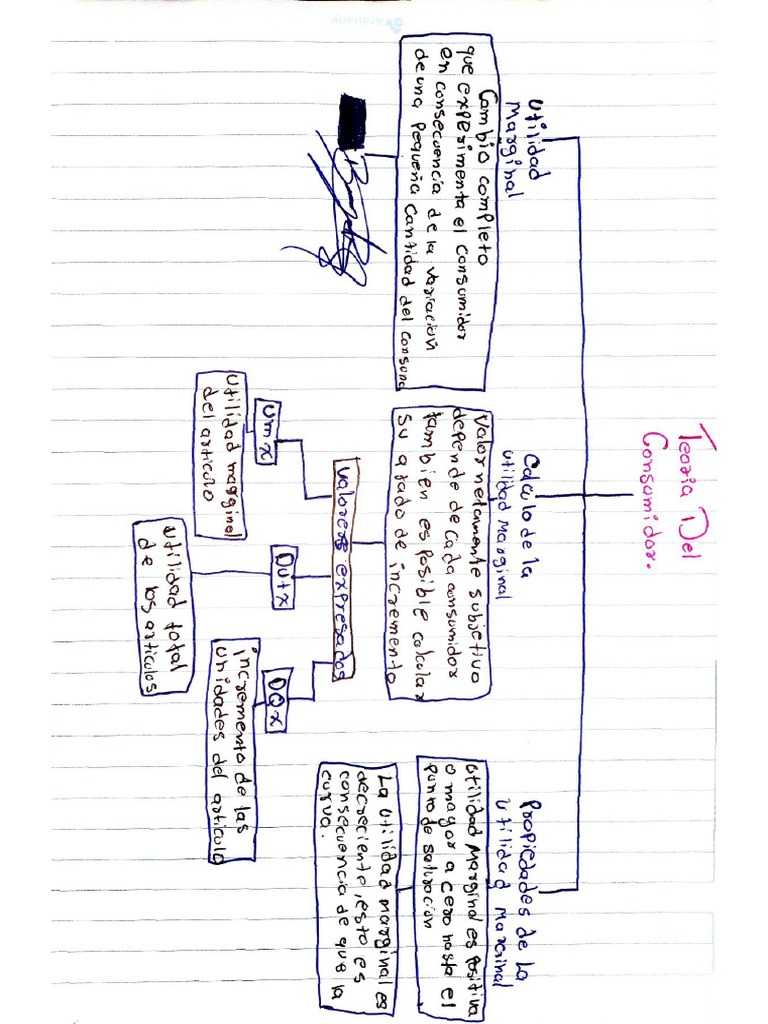 Teoria Del
Consumidor.
Utilidad
Marginal
Cambio completo
que experimenta el consumidor
en consecuencia de la variación
de una pequeña cantidad del consumo
Calculo de la
utilidad Marginal
Valor netamente subjetivo
depende de cada consumidor
tambien es posible calcular
su grado de incremento
valores expresados
Umx
Utilidad marginal
del articulo
DUtx
Utilidad total
de los articulos
DQx
incremento de las
unidades del articulo
Propiedades de la
Utilidad Marginal
Utilidad Marginal es Positiva
o mayor a cero hasta el
punto de saturacion
La utilidad marginal es
decreciente, esto es
consecuencia de que la
curva.